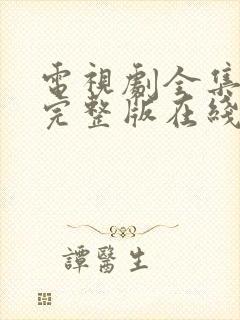 電視劇全集
完整版在綫
譚醫生